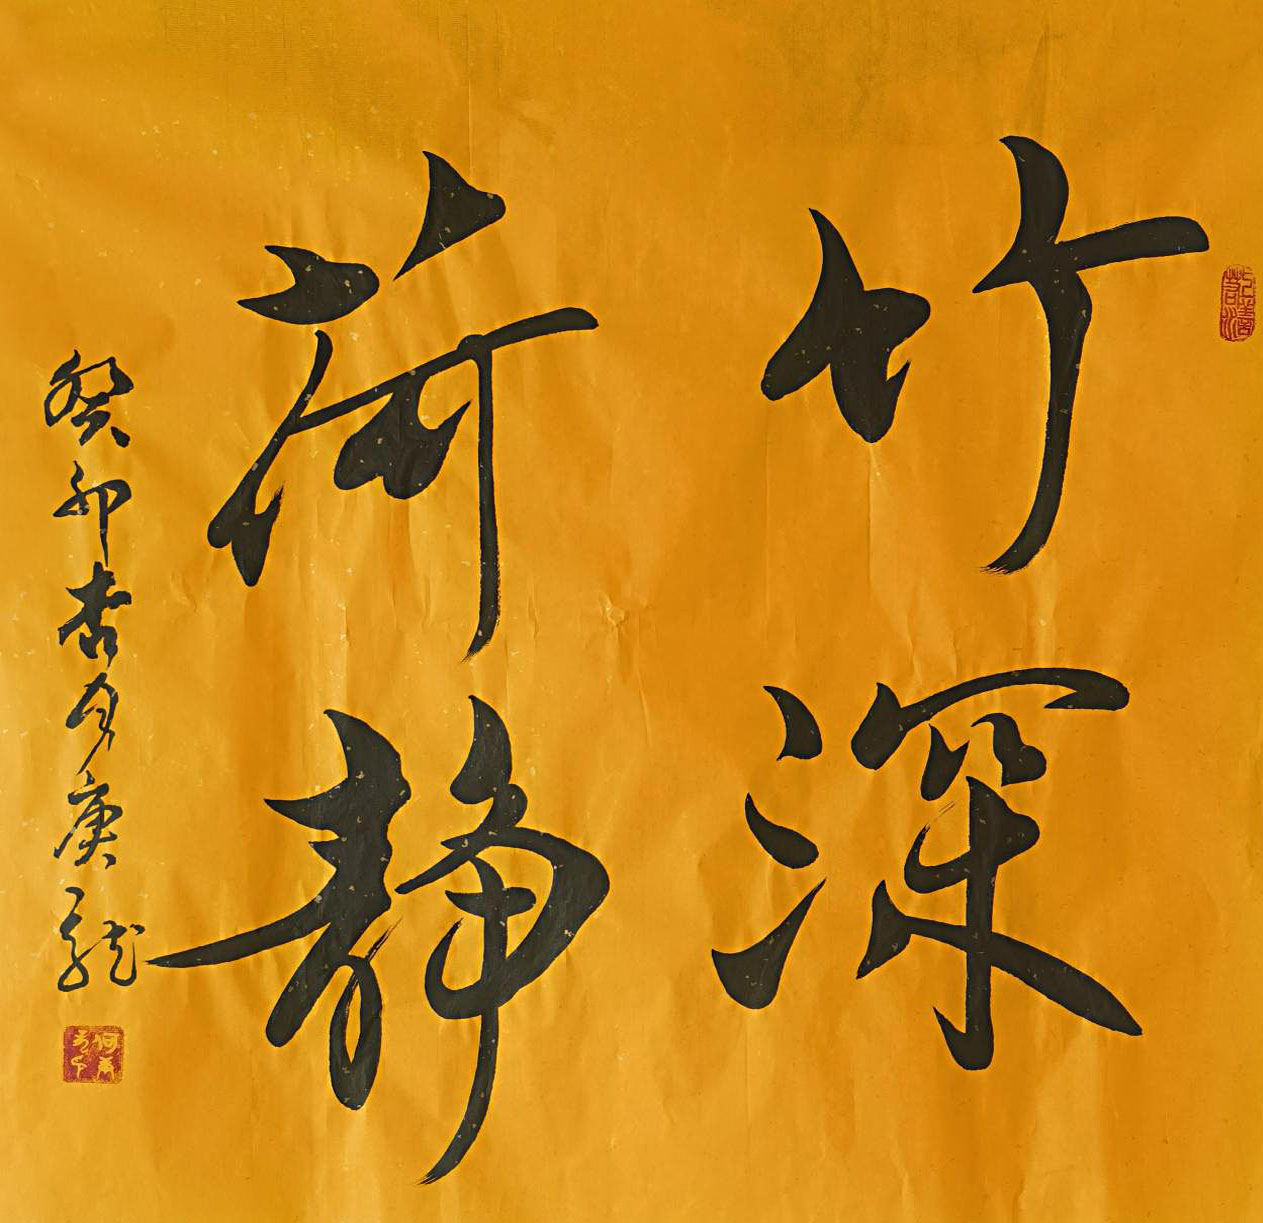 竹深
荷静
癸卯杏月庚龙